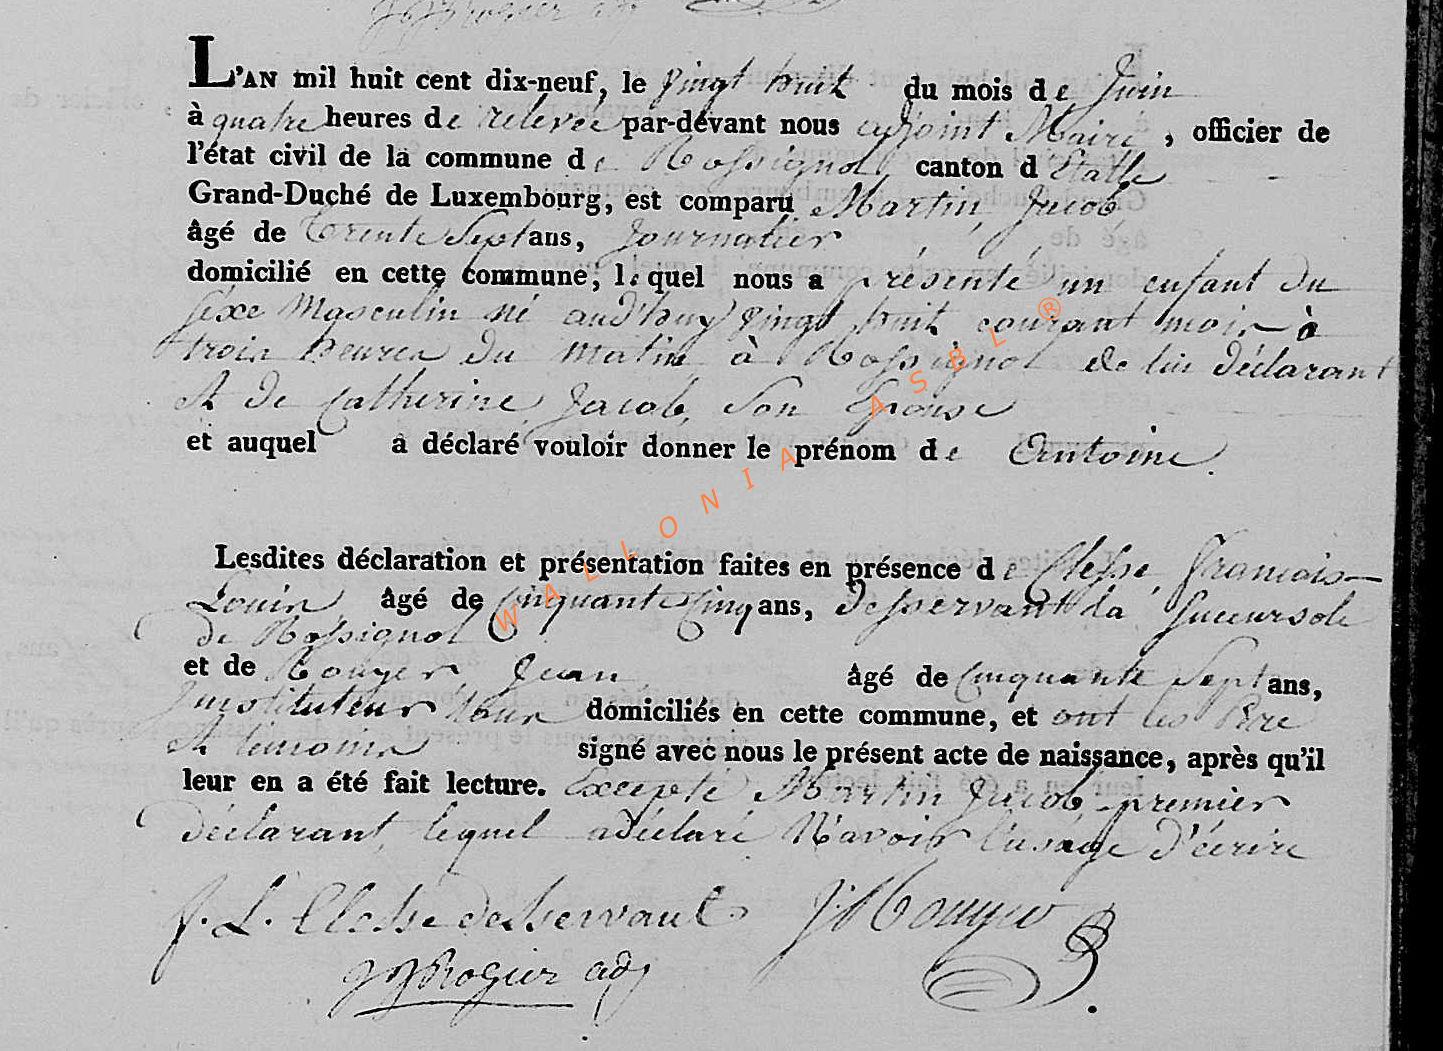 L'AN mil huit cent dix-neuf, le vingt huit du mois de Juin
à quatre heures de relevée par-devant nous adjoint Maire, officier de
l'état civil de la commune de Rossignol canton d'Etalle
Grand-Duché de Luxembourg, est comparu Martin Jacob
âgé de Trente Sept ans, Journalier
domicilié en cette commune, lequel nous a présenté un enfant du
séxe Masculin né aud'huy vingt huit courant mois à
trois heures du matin à Rossignol de lui déclarant
et de Catherine Jacob, Son Epouse
et auquel a déclaré vouloir donner le prénom de Antoine.
Lesdites déclaration et présentation faites en présence de Clesse, François
Louis, âgé de Cinquante Cinq ans, Desservant la Succursole
de Rossignol
et de Jean âgé de Cinquante Sept ans,
Instituteur tour domiciliés en cette commune, et ont les Père
et temoins signé avec nous le présent acte de naissance, après qu'il
leur en a été fait lecture. Excepté Martin Jacob premier
déclarant, lequel a déclaré N'avoir l'usage d'écrire
f. L. Clesse desservant J:
JJ Rogier adj
WALLONIA ASBL ®